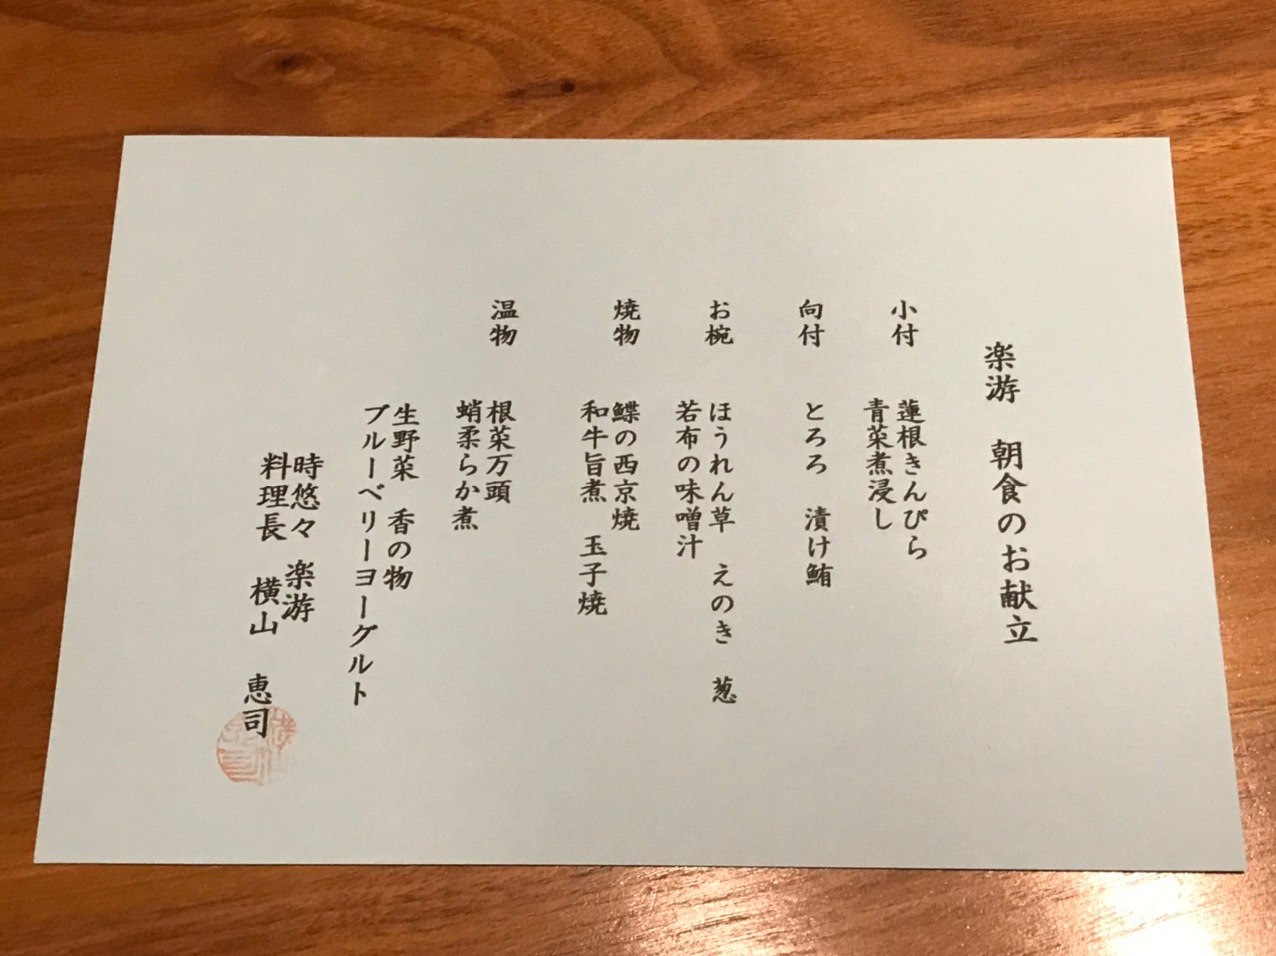 楽游 朝食のお献立
小付 蓮根きんぴら
青菜煮浸し
向付 とろろ 漬け鮪
お椀 ほうれん草 えのき 葱
若布の味噌汁
焼物 鰈の西京焼
和牛旨煮 玉子焼
温物 根菜万頭
蛸柔らか煮
生野菜 香の物
ブルーベリーヨーグルト
時悠々 楽游
料理長 横山 恵司